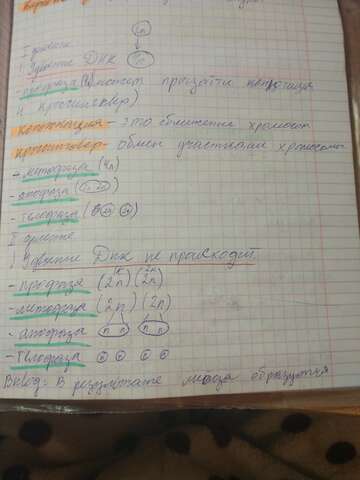 2n
I деление
! Удвоение ДНК
- профаза (может произойти конъюгация
и кроссинговер)
конъюгация - это сближение хромосом
кроссинговер - обмен участками хромосом
- метафаза (4n)
- анафаза (2n 2n)
- телофаза (2n 2n)
II деление
! Удвоение ДНК не происходит.
- профаза (2n) (2n)
- метафаза (2n) (2n)
- анафаза (n n) (n n)
- телофаза
Вывод: В результате мейоза образуются